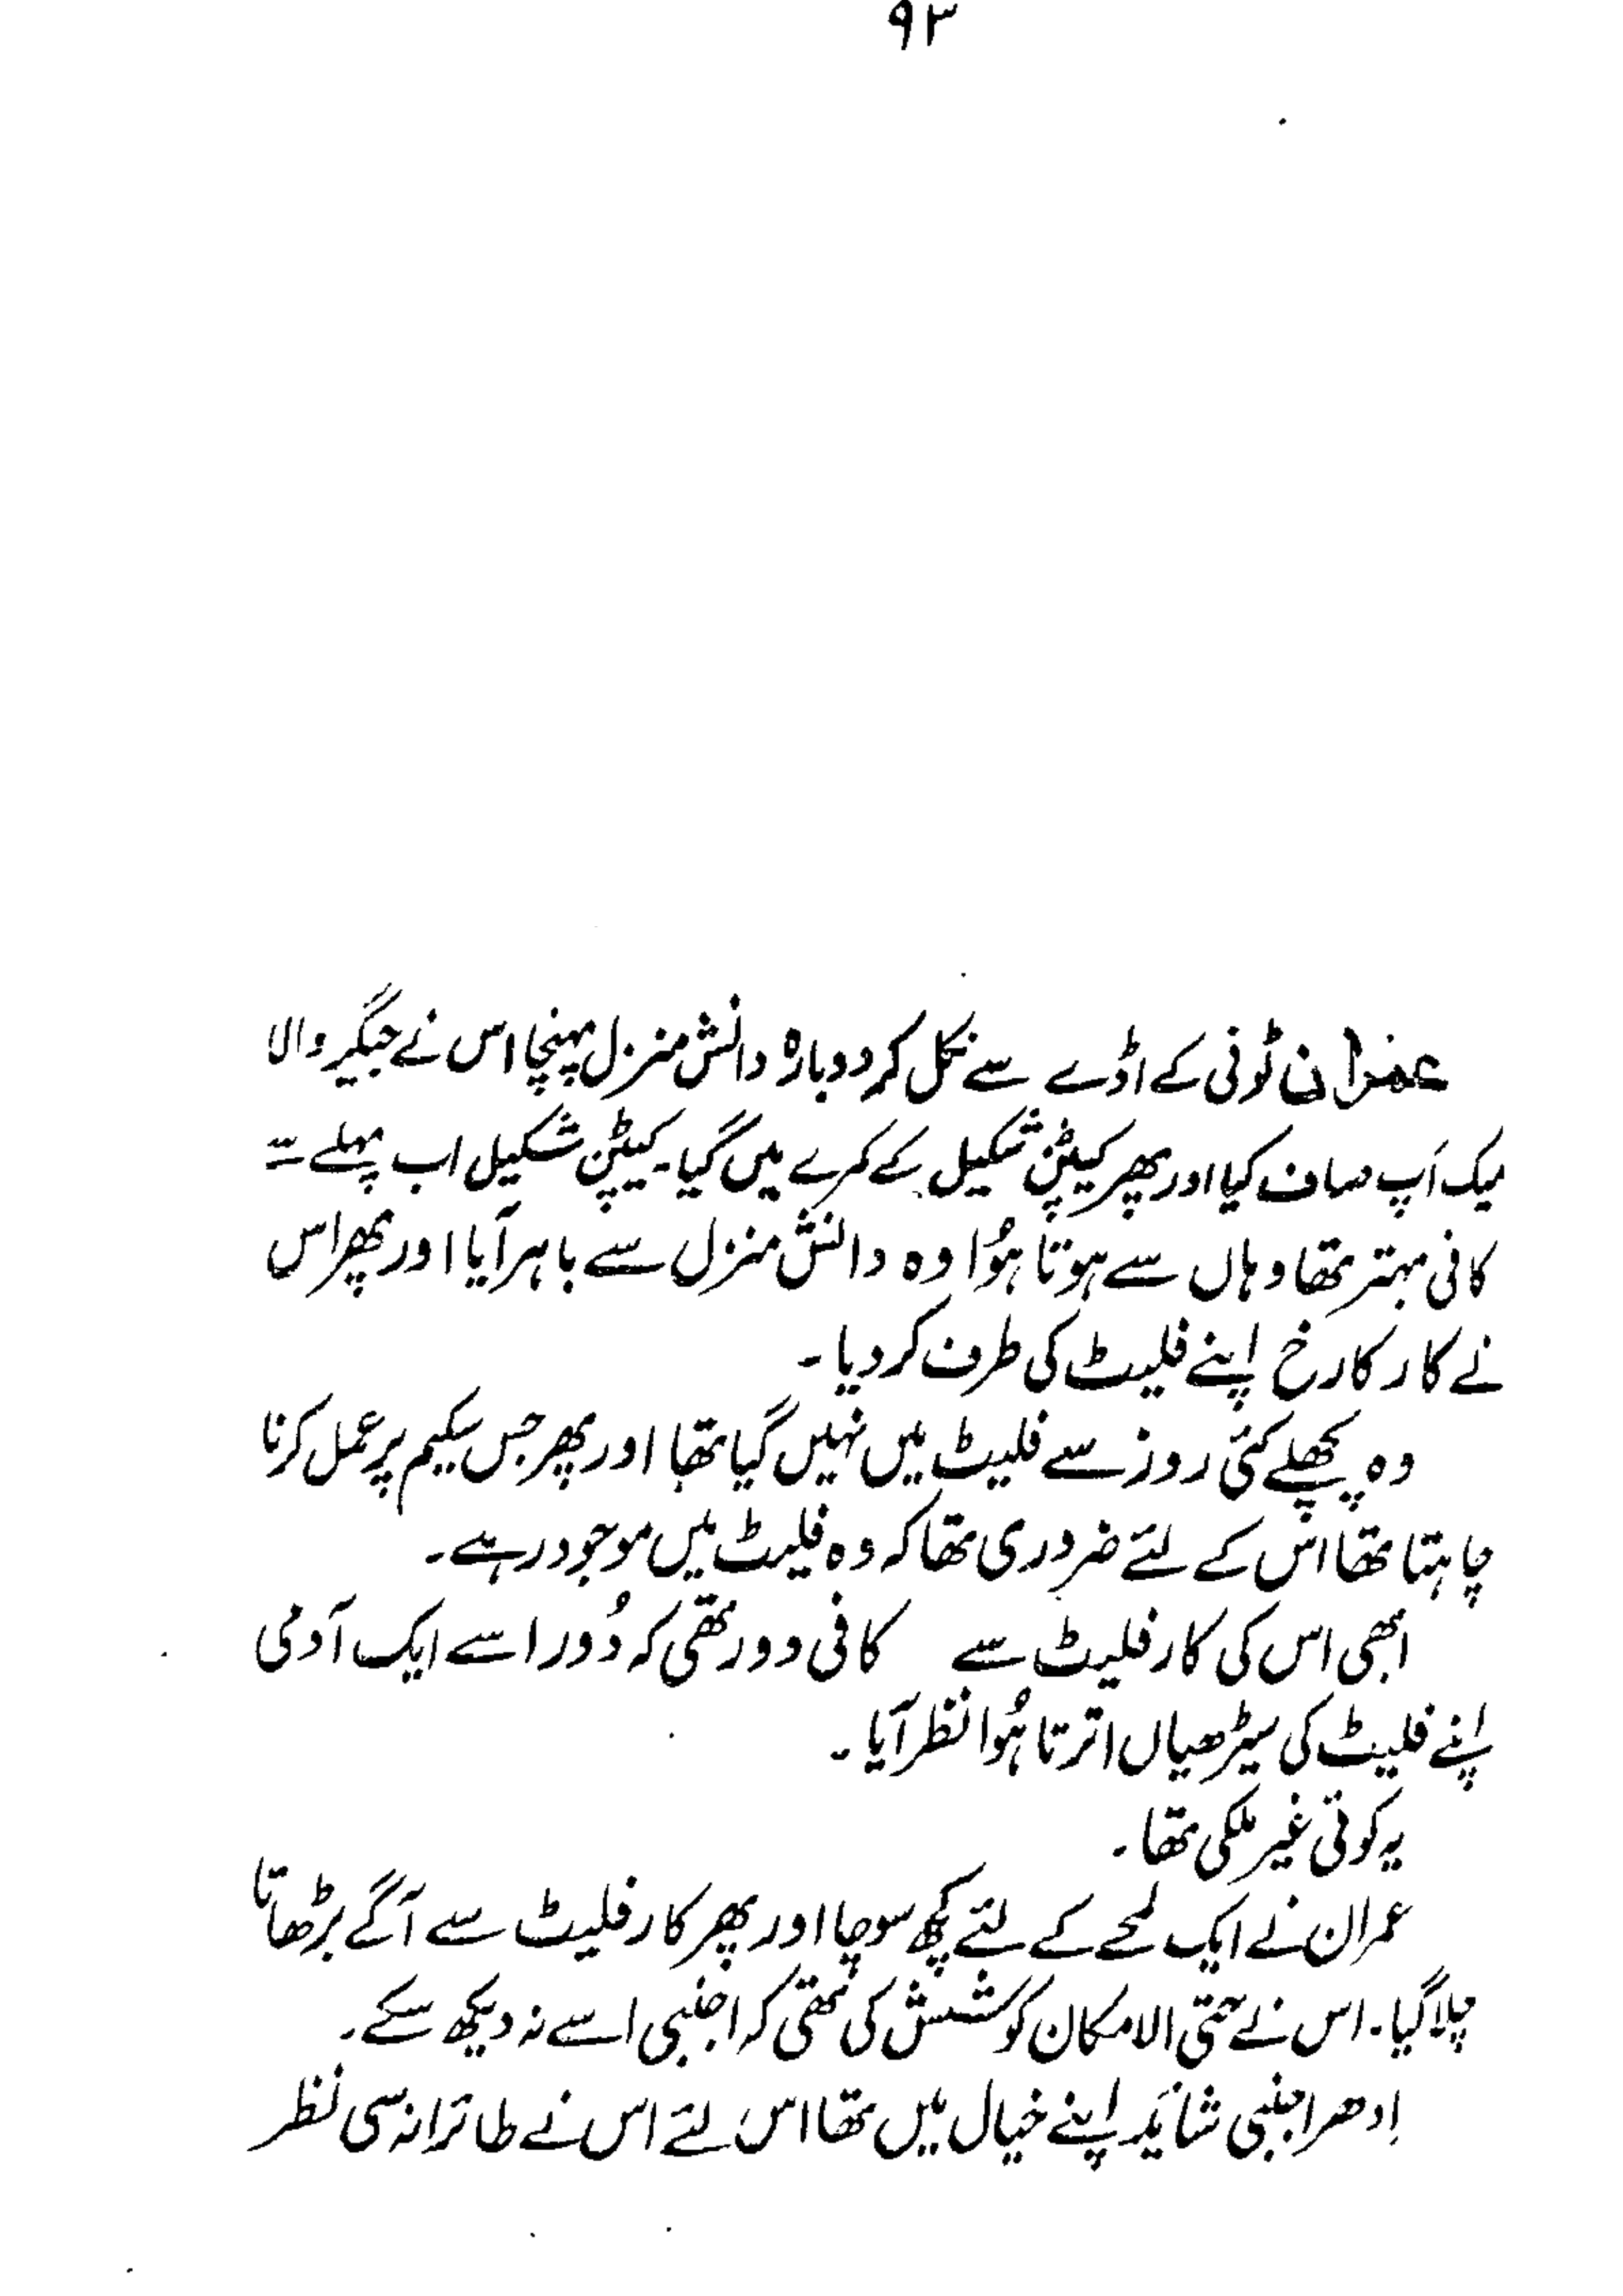 ۹۳
عمران ٹونی کے اڈے سے نکل کر دوبارہ دانش منزل پہنچا اس نے جیگر والا
میک اَپ صاف کیا اور پھر کیپٹن شکیل کے کمرے میں گیا۔ کیپٹن شکیل اب پہلے سے
کافی بہتر تھا وہاں سے ہوتا ہوُا وہ دانش منزل سے باہر آیا اور پھر اس
نے کار کا رخ اپنے فلیٹ کی طرف کر دیا۔
وہ پچھلے کئی روز سے فلیٹ میں نہیں گیا تھا اور پھر جس سکیم پر عمل کرنا
چاہتا تھا اس کے لئے ضروری تھا کہ وہ فلیٹ میں موجود رہے۔
ابھی اس کی کار فلیٹ سے کافی دور تھی کہ دُور اسے ایک آدمی
اپنے فلیٹ کی سیڑھیاں اترتا ہوُا نظر آیا۔
یہ کوئی غیر ملکی تھا۔
عمران نے ایک لمحے کے لئے کچھ سوچا اور پھر کار فلیٹ سے آگے بڑھاتا
چلا گیا۔ اس نے حتی الامکان کوشش کی تھی کہ اجنبی اسے نہ دیکھ سکے۔
اِدھر اجنبی شائد اپنے خیال میں تھا اس لئے اس نے طائرانہ سی نظر